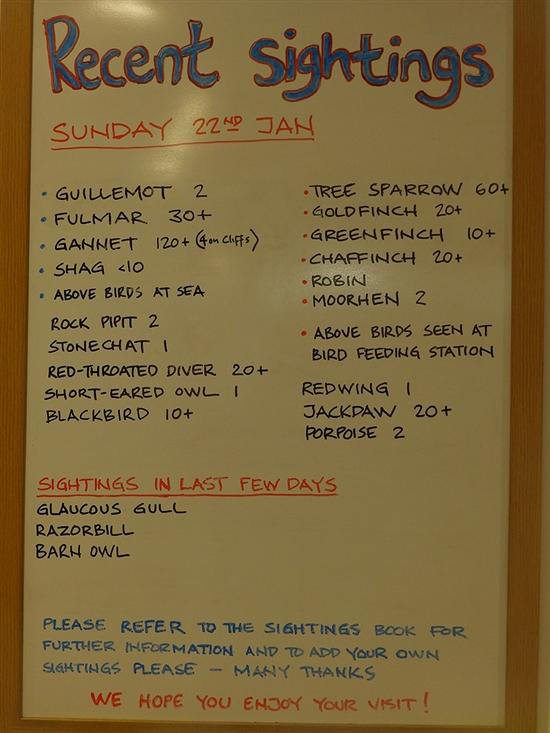 Recent Sightings
SUNDAY 22ND JAN
• GUILLEMOT 2
• FULMAR 30+
• GANNET 120+ (4 on cliffs)
• SHAG <10
• ABOVE BIRDS AT SEA
ROCK PIPIT 2
STONECHAT 1
RED-THROATED DIVER 20+
SHORT-EARED OWL 1
BLACKBIRD 10+
• TREE SPARROW 60+
• GOLDFINCH 20+
• GREENFINCH 10+
• CHAFFINCH 20+
• ROBIN
• MOORHEN 2
• ABOVE BIRDS SEEN AT
BIRD FEEDING STATION
REDWING 1
JACKDAW 20+
PORPOISE 2
SIGHTINGS IN LAST FEW DAYS
GLAUCOUS GULL
RAZORBILL
BARN OWL
PLEASE REFER TO THE SIGHTINGS BOOK FOR
FURTHER INFORMATION AND TO ADD YOUR OWN
SIGHTINGS PLEASE – MANY THANKS
WE HOPE YOU ENJOY YOUR VISIT!